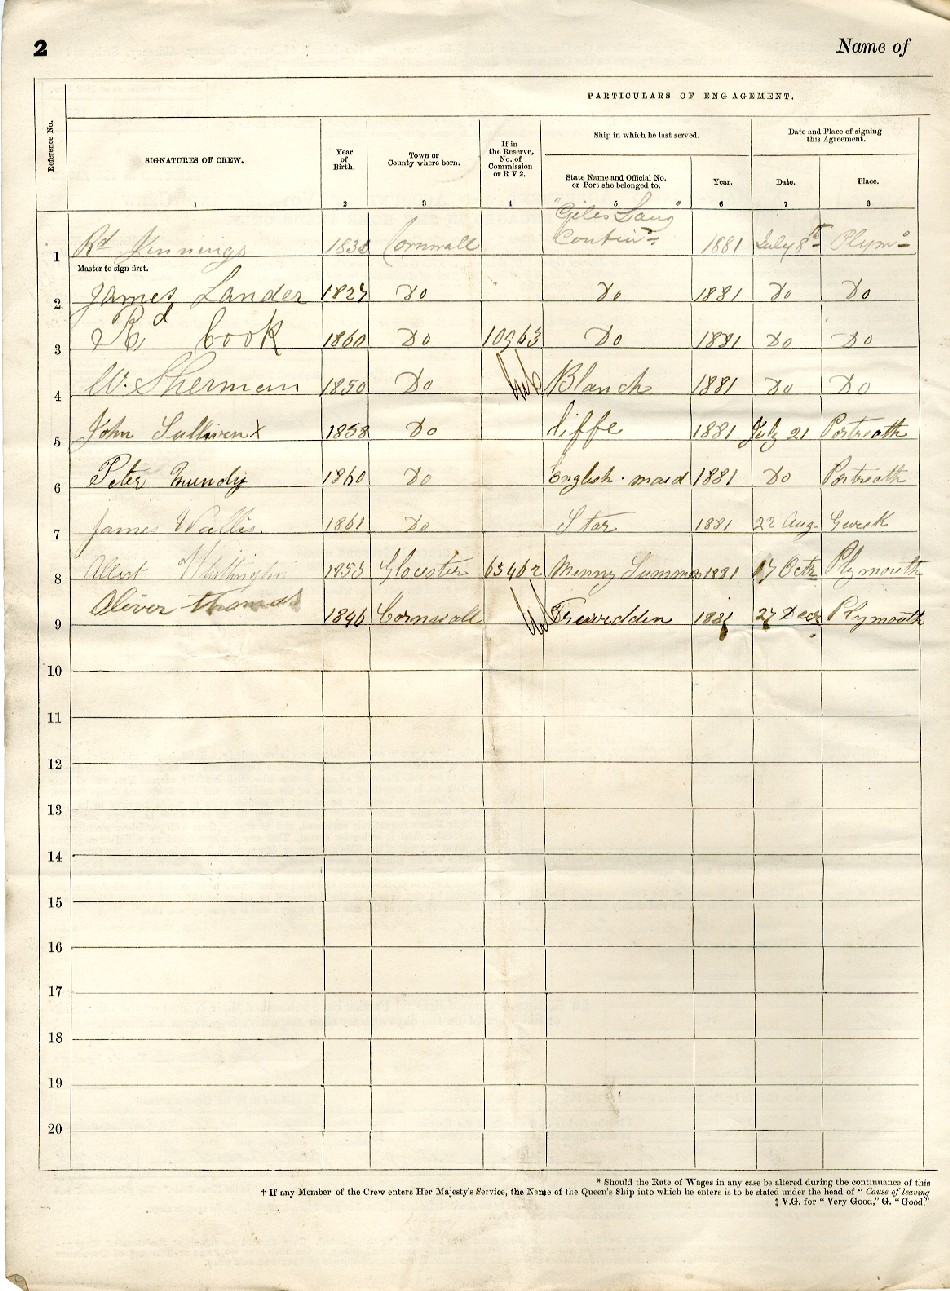 2 Name of
PARTICULARS OF ENGAGEMENT.
Reference No.
SIGNATURES OF CREW.
Year of Birth.
Town or County where born.
If in the Reserve, No. of Commission or R V 2.
Ship in which he last served.
State Name and Official No. or Port she belonged to.
Year.
Date and Place of signing this Agreement.
Date.
Place.
1 2 3 4 5 6 7 8
"Giles Lang"
1 Rd Jennings Cornwall Contind 1881 July 8th Plymo
Master to sign first.
2 James Lander 1827 Do Do 1881 Do Do
3 Rd Cook 1860 Do 10963 Do 1881 Do Do
4 W. Sherman 1850 Do Blanch 1881 Do Do
5 John Sulliven X 1858 Do 1881 July 21 Portreath
6 Peter Mundy 1860 Do English maid 1881 Do Portreath
7 James Wallis 1861 Do Star 1881 22 Aug Gweek
8 Albert Whittington Glocester 65462 1881 17 Octr Plymouth
9 Oliver Thomas 1846 Cornwall Trewidden 1881 27 Decr Plymouth
10
11
12
13
14
15
16
17
18
19
20
* Should the Rate of Wages in any case be altered during the continuance of this
† If any Member of the Crew enters Her Majesty's Service, the Name of the Queen's Ship into which he enters is to be stated under the head of "Cause of leaving
‡ V.G. for "Very Good," G. "Good"